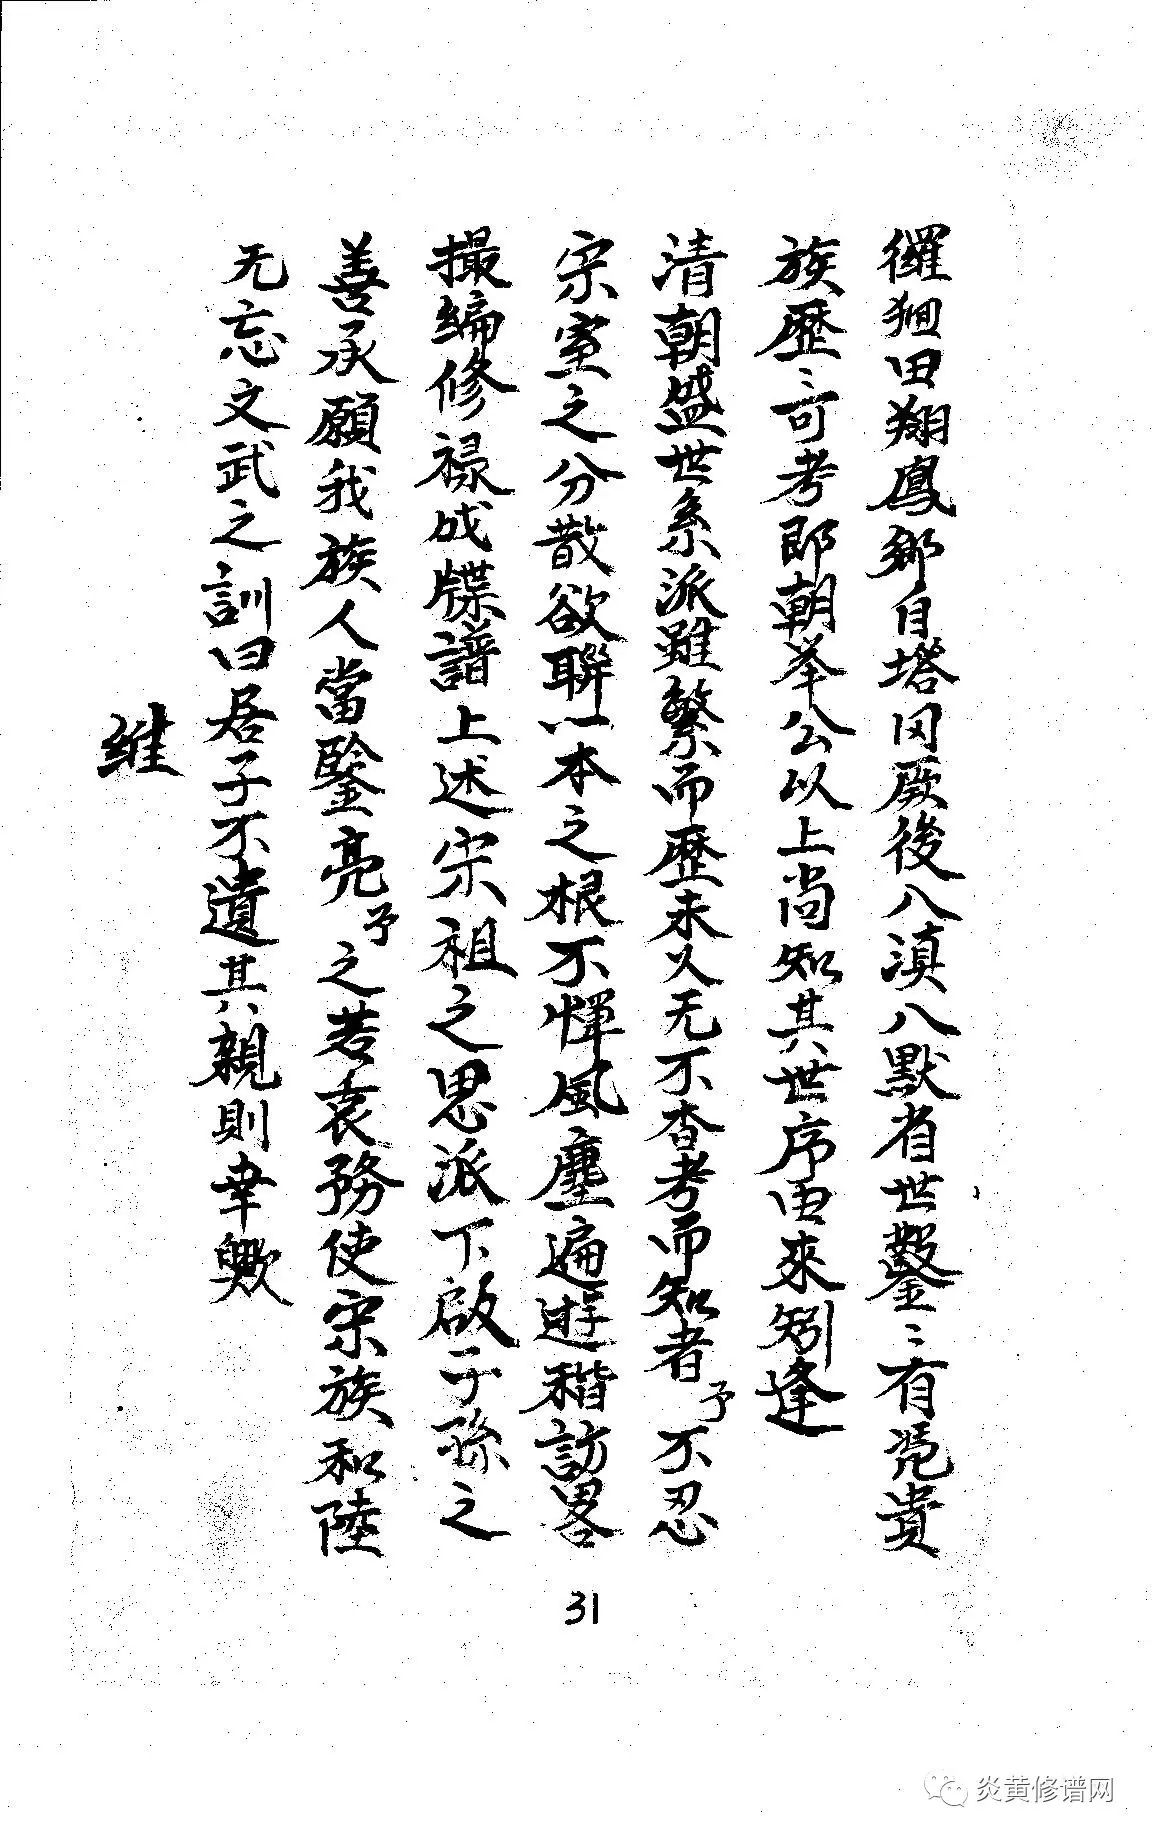 玀狪田翔鳳鄉自塔冈厥後入滇入默省世鑿〻有凴貴
族歷〻可考即朝举公以上尚知其世序由來矧逢
清朝盛世系派雖繁而歷未乆无不查考而知者予不忍
宗室之分散欲聯一本之根不惲風塵遍遊稽訪畧
撮編修禄成牒譜上述宗祖之思派下啟子孫之
善承願我族人當鑒亮予之若衷務使宗族和陸
无忘文武之訓曰君子不遺其親則幸歟
维
31
炎黄修谱网